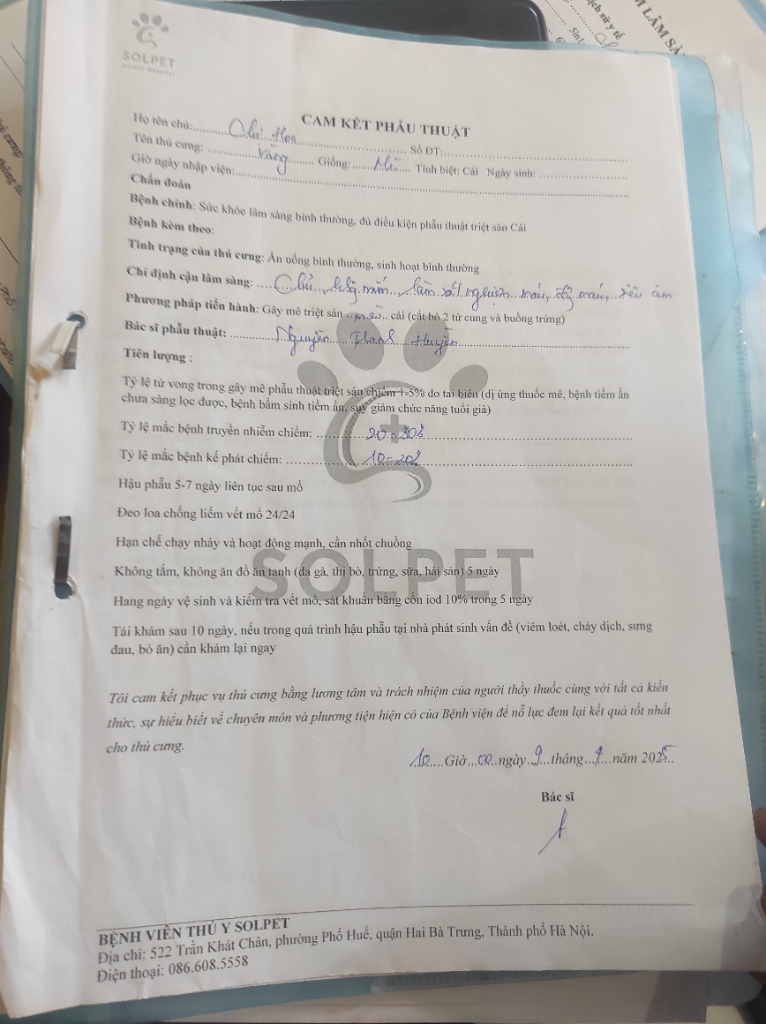 SOLPET
ANIMAL HOSPITAL
CAM KẾT PHẪU THUẬT
Họ tên chủ:.............. Số ĐT:..............
Tên thú cưng: ....Vàng.... Giống: ....Mèo.... Tính biệt: Cái Ngày sinh: ..............
Giờ ngày nhập viện:..............
Chẩn đoán
Bệnh chính: Sức khỏe lâm sàng bình thường, đủ điều kiện phẫu thuật triệt sản Cái
Bệnh kèm theo:
Tình trạng của thú cưng: Ăn uống bình thường, sinh hoạt bình thường
Chỉ định cận lâm sàng: .... làm xét nghiệm máu, máu, siêu âm
Phương pháp tiến hành: Gây mê triệt sản ..mèo.. cái (cắt bỏ 2 tử cung và buồng trứng)
Bác sĩ phẫu thuật: ....Nguyễn Thanh Huyền....
Tiên lượng :
Tỷ lệ tử vong trong gây mê phẫu thuật triệt sản chiếm 1-5% do tai biến (dị ứng thuốc mê, bệnh tiềm ẩn
chưa sàng lọc được, bệnh bẩm sinh tiềm ẩn, suy giảm chức năng tuổi già)
Tỷ lệ mắc bệnh truyền nhiễm chiếm: ....20-30%....
Tỷ lệ mắc bệnh kế phát chiếm: ....10-20%....
Hậu phẫu 5-7 ngày liên tục sau mổ
Đeo loa chống liếm vết mổ 24/24
Hạn chế chạy nhảy và hoạt động mạnh, cần nhốt chuồng
Không tắm, không ăn đồ ăn tanh (da gà, thị bò, trứng, sữa, hải sản) 5 ngày
Hang ngày vệ sinh và kiểm tra vết mổ, sát khuẩn bằng cồn iod 10% trong 5 ngày
Tái khám sau 10 ngày, nếu trong quá trình hậu phẫu tại nhà phát sinh vấn đề (viêm loét, chảy dịch, sưng
đau, bỏ ăn) cần khám lại ngay
Tôi cam kết phục vụ thú cưng bằng lương tâm và trách nhiệm của người thầy thuốc cùng với tất cả kiến
thức, sự hiểu biết về chuyên môn và phương tiện hiện có của Bệnh viện để nỗ lực đem lại kết quả tốt nhất
cho thú cưng.
10....Giờ...00..ngày.9...tháng...9...năm 2025..
Bác sĩ
SOLPET
BỆNH VIỆN THÚ Y SOLPET
Địa chỉ: 522 Trần Khát Chân, phường Phố Huế, quận Hai Bà Trưng, Thành phố Hà Nội.
Điện thoại: 086.608.5558